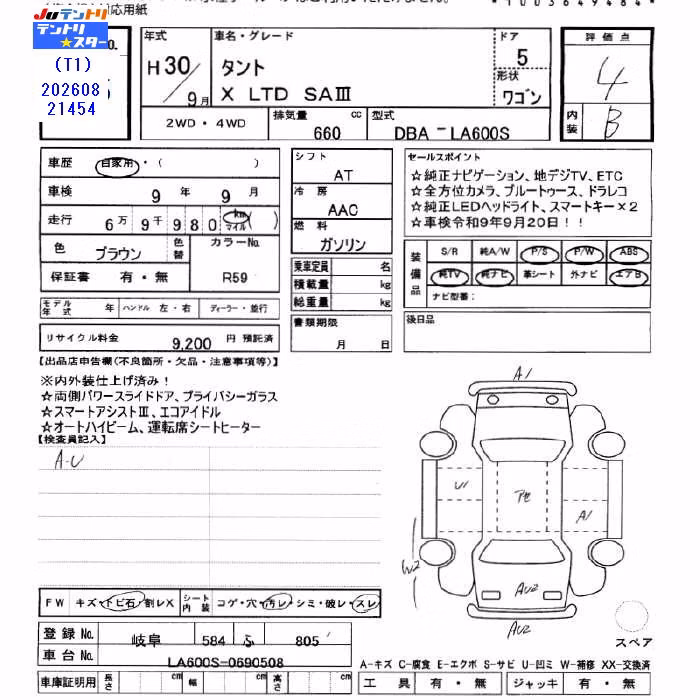 対応用紙
JUテントリ
テントリ★スター
(T1)
202608
21454
NO.
年式
H30/9月
車名・グレード
タント
X LTD SAⅢ
ドア
5
形状
ワゴン
評価点
4
内装
B
2WD・4WD
排気量 660 cc
型式 DBA-LA600S
車歴 自家用・( )
車検 9年 9月
走行 6万9千980 km マイル ( )
色 ブラウン 色替 カラーNo.
保証書 有・無 R59
モデル年式 年 ハンドル 左・右 ディーラー・並行
リサイクル料金 9,200 円 預託済
シフト
AT
冷房
AAC
燃料
ガソリン
乗車定員 名
積載量 kg
総重量 kg
書類期限
月 日
セールスポイント
☆純正ナビゲーション、地デジTV、ETC
☆全方位カメラ、ブルートゥース、ドラレコ
☆純正LEDヘッドライト、スマートキー×2
☆車検令和9年9月20日!!
装備品
S/R 純A/W P/S P/W ABS
純TV 純ナビ 革シート 外ナビ エアB
ナビ型番:
後日品
【出品店申告欄(不良箇所・欠品・注意事項等)】
※内外装仕上げ済み!
☆両側パワースライドドア、プライバシーガラス
☆スマートアシストⅢ、エコアイドル
☆オートハイビーム、運転席シートヒーター
【検査員記入】
A-U
A1
U1
A1
W2
AU2
AU2
スペア
FW キズ・トビ石・割レX シート内装 コゲ・穴・汚レ・シミ・破レ・スレ
登録No. 岐阜 584 ふ 805
車台No. LA600S-0690508
車庫証明用 長さ cm 幅 cm 高さ cm
A-キズ C-腐食 E-エクボ S-サビ U-凹ミ W-補修 XX-交換済
工具 有・無 ジャッキ 有・無